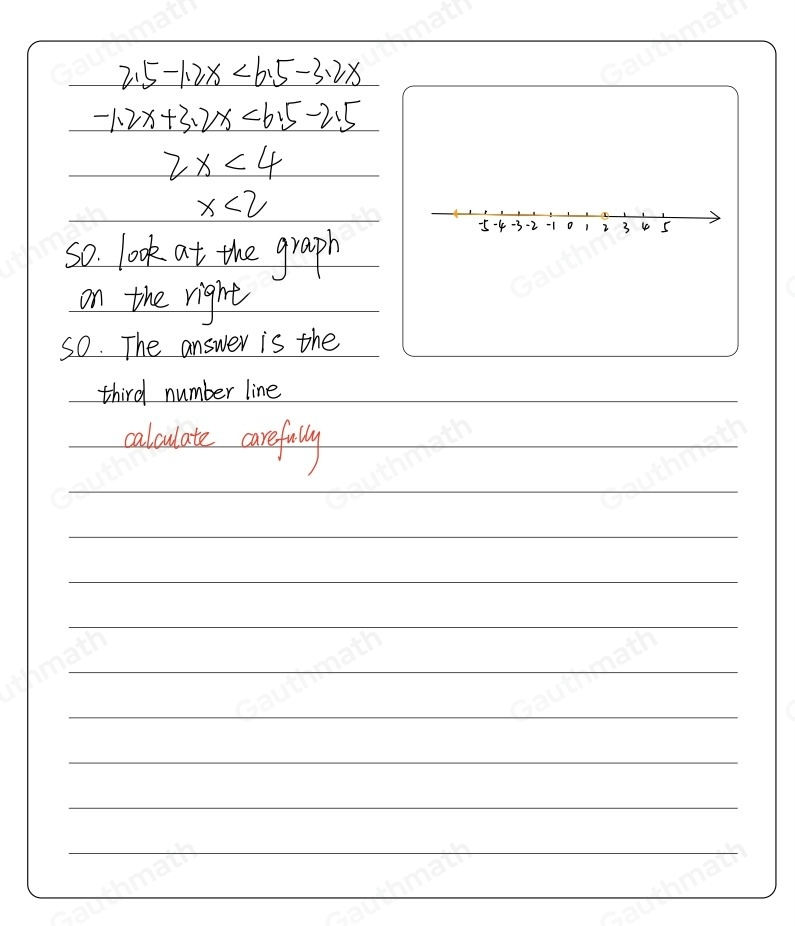 2.5-1.2x<6.5-3.2x
-1.2x+3.2x<6.5-2.5
2x<4
x<2
so. look at the graph
on the right
so. The answer is the
third number line
calculate carefully
-5 -4 -3 -2 -1 0 1 2 3 4 5
Gauthmath